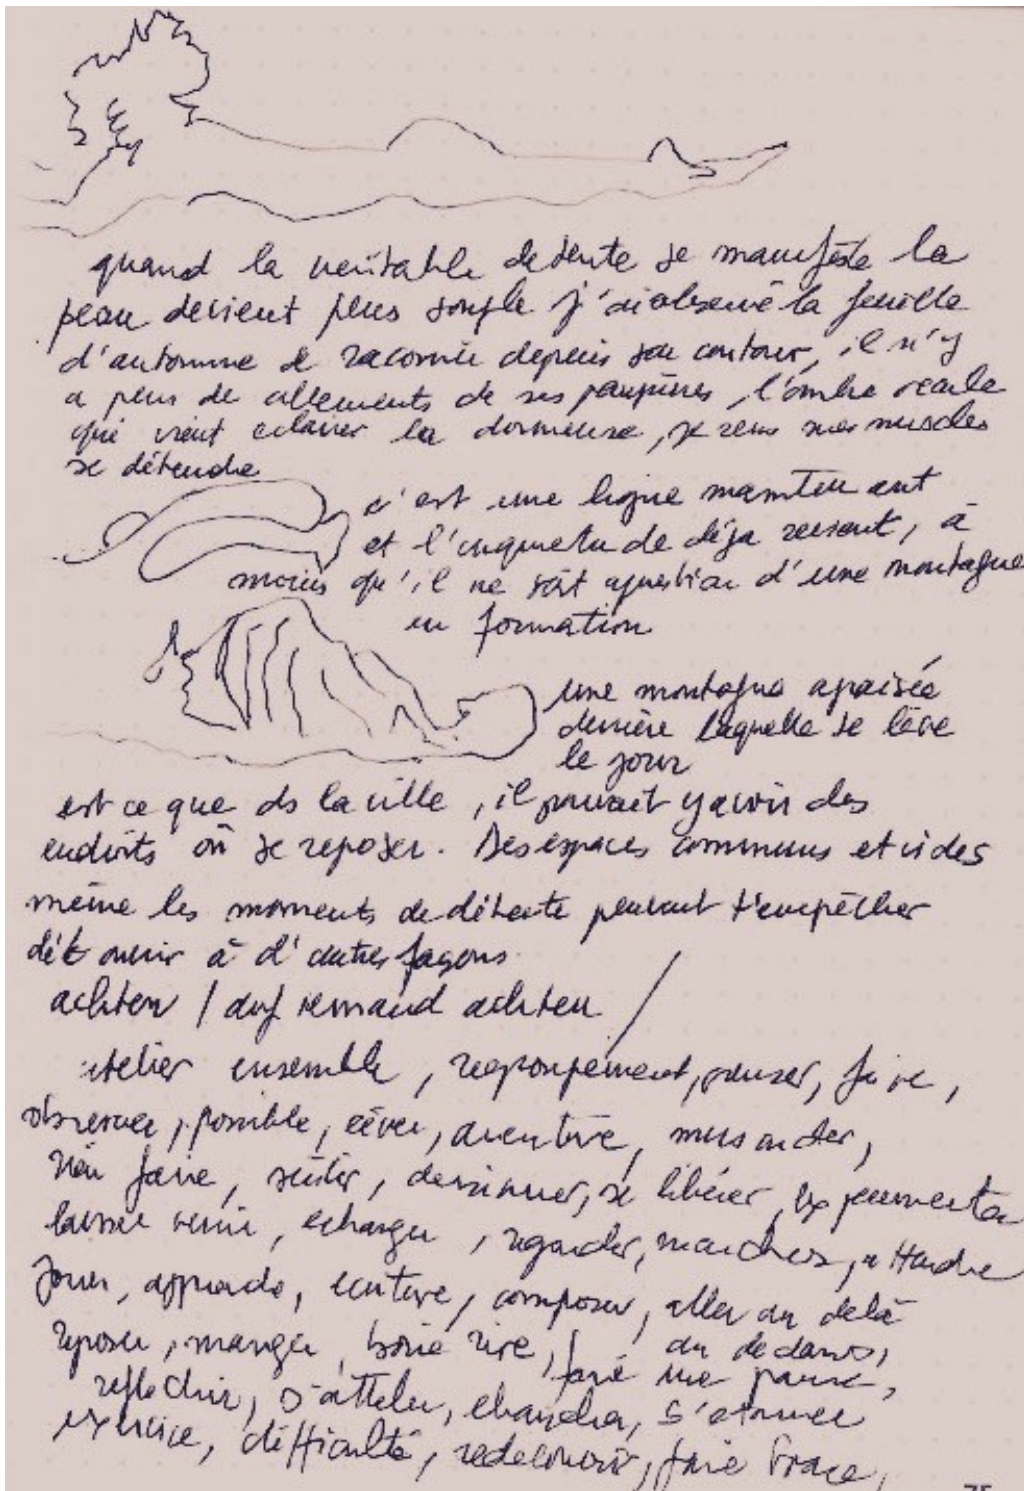 quand la véritable detente se manifeste la
peau devient plus souple j'ai observé la feuille
d'automne se racornir depuis son contour, il n'y
a plus de de ses paupières, l'ombre recule
qui vient eclairer la dormeuse, je sens mes muscles
se détendre
c'est une ligne maintenant
et l'inquietude déja revient, à
moins qu'il ne soit question d'une montagne
en formation
une montagne apaisée
derrière laquelle se lève
le jour
est ce que ds la ville, il pouvait y avoir des
endroits où se reposer. Des espaces communs et vides
même les moments de détente peuvent t'empêcher
dèt ouvrir à d'autres façons.
achten / auf jemand achten /
atelier ensemble, regroupement, penser, faire,
observer, possible, rêver, aventure, musarder,
rien faire, dessinner, se libérer, experimenter
laisser venir, echanger, regarder, marcher, attendre
jouer, apprendre, ecriture, composer, aller au delà
reposer, manger, boire rire, / au dedans,
faire une pause,
reflechir, s'atteler, ebaucher, s'etonner
exercice, difficulté, redecouvrir, faire trace,
75